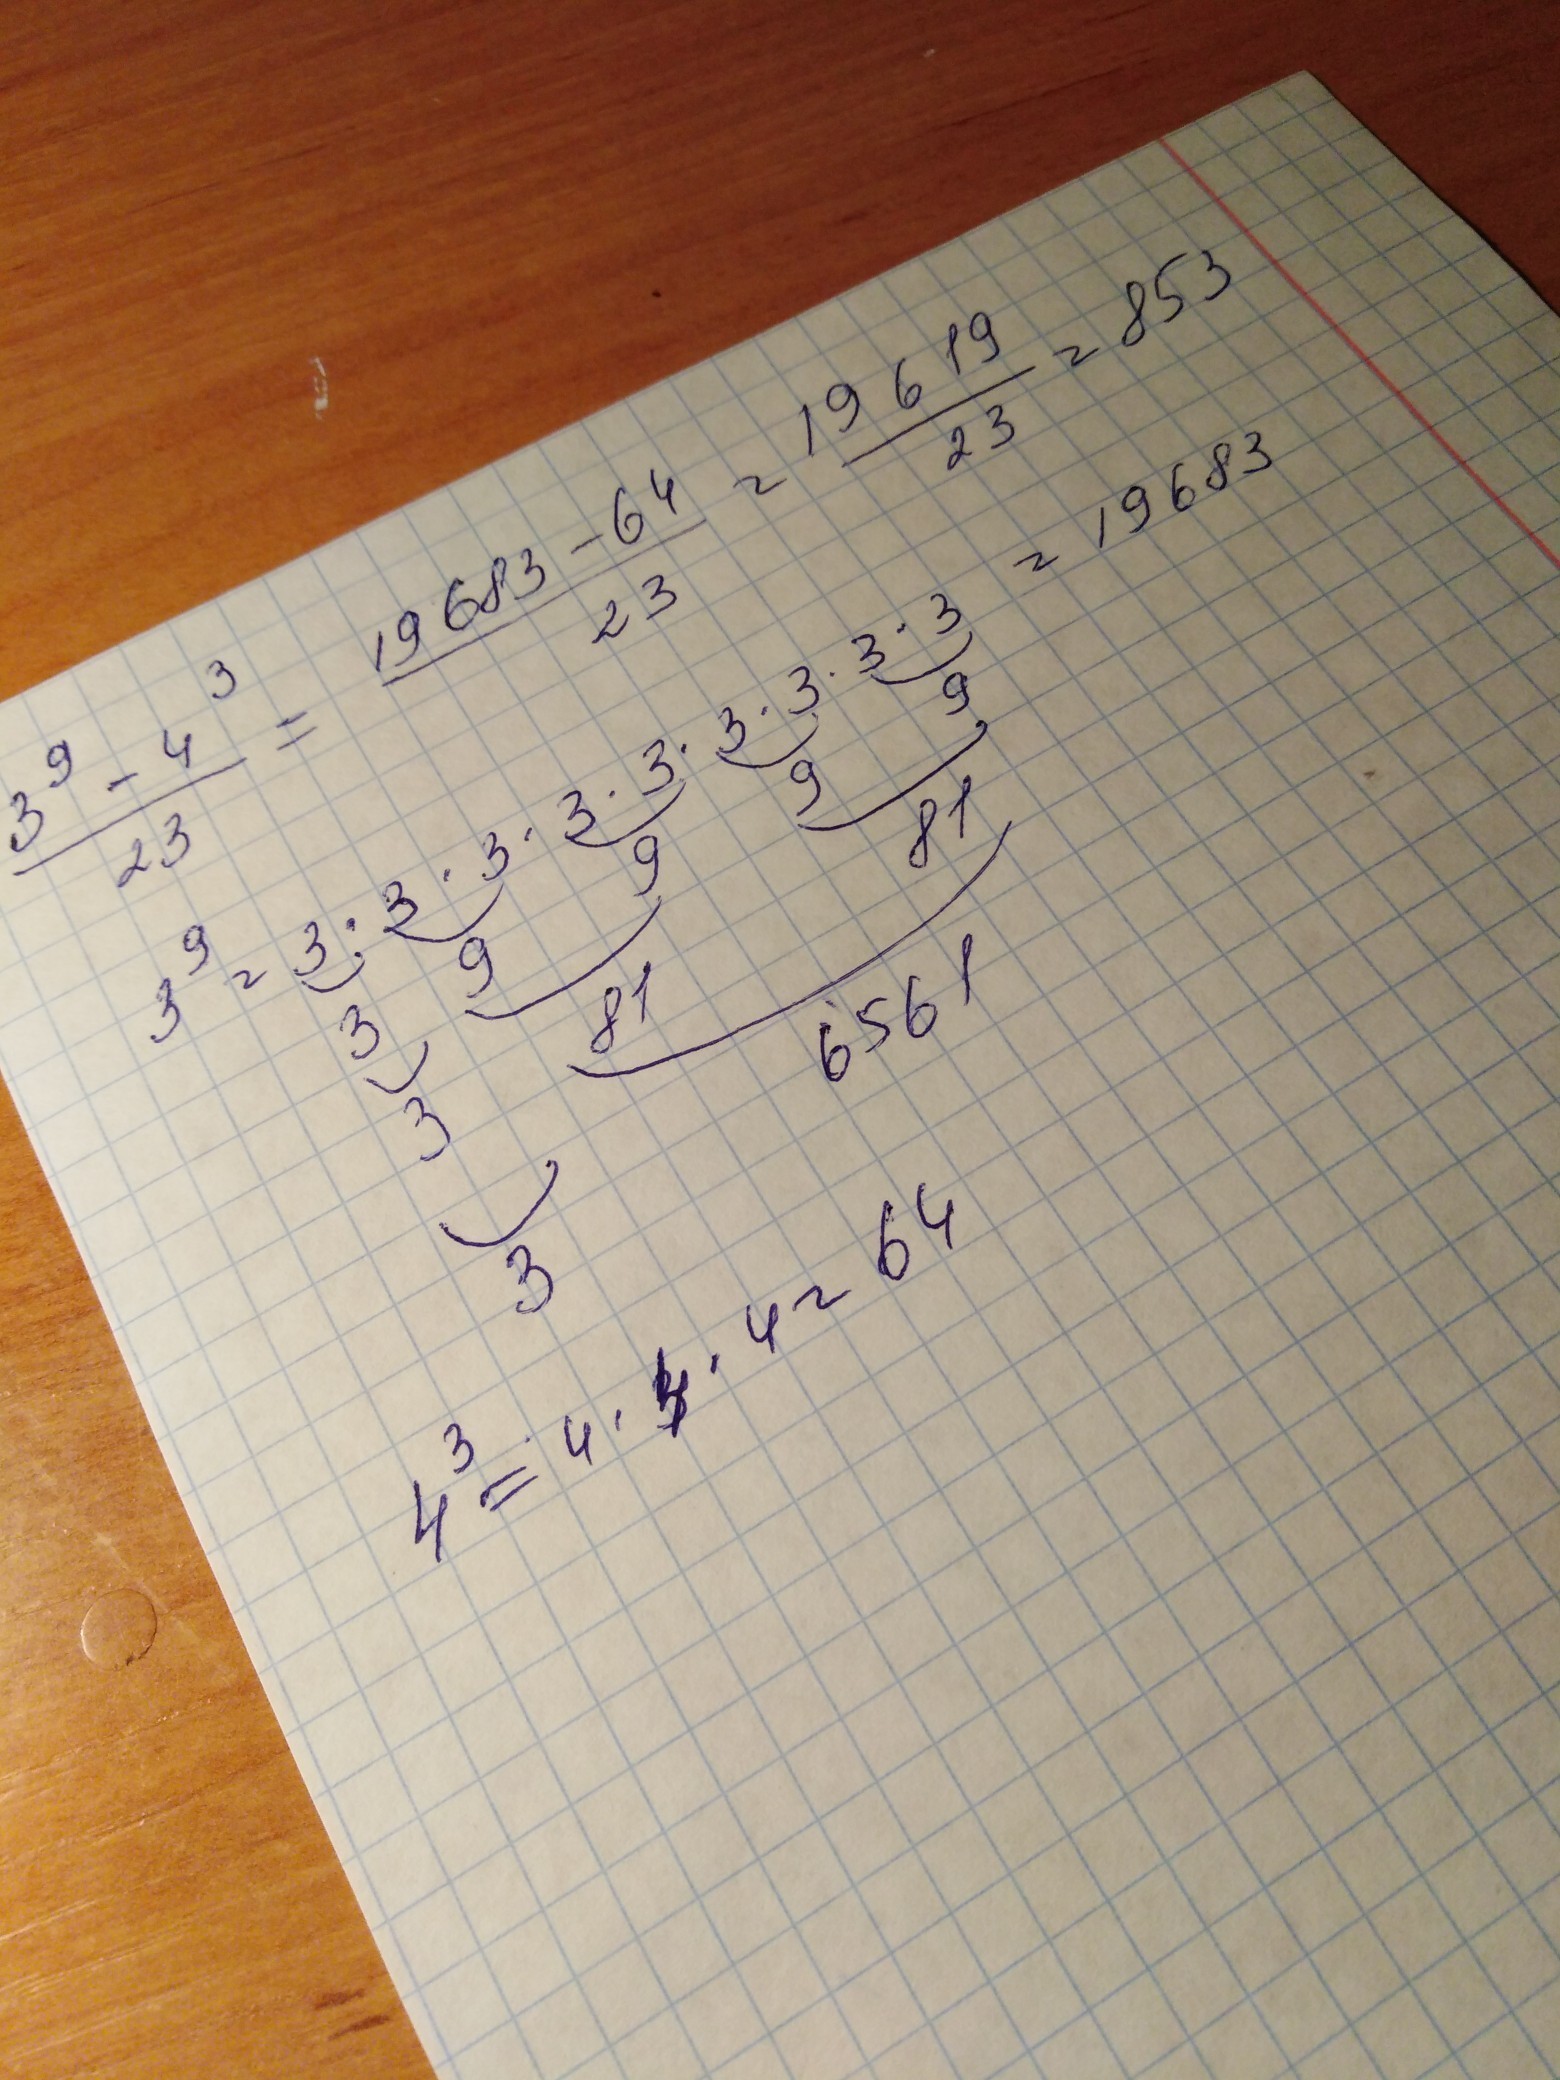 3⁹ - 4³ / 23 = 19683 - 64 / 23 = 19619 / 23 = 853
3⁹ = 3 · 3 · 3 · 3 · 3 · 3 · 3 · 3 · 3 = 19683
3 9 9 9 9
3 81 81
3 6561
4³ = 4 · 4 · 4 = 64